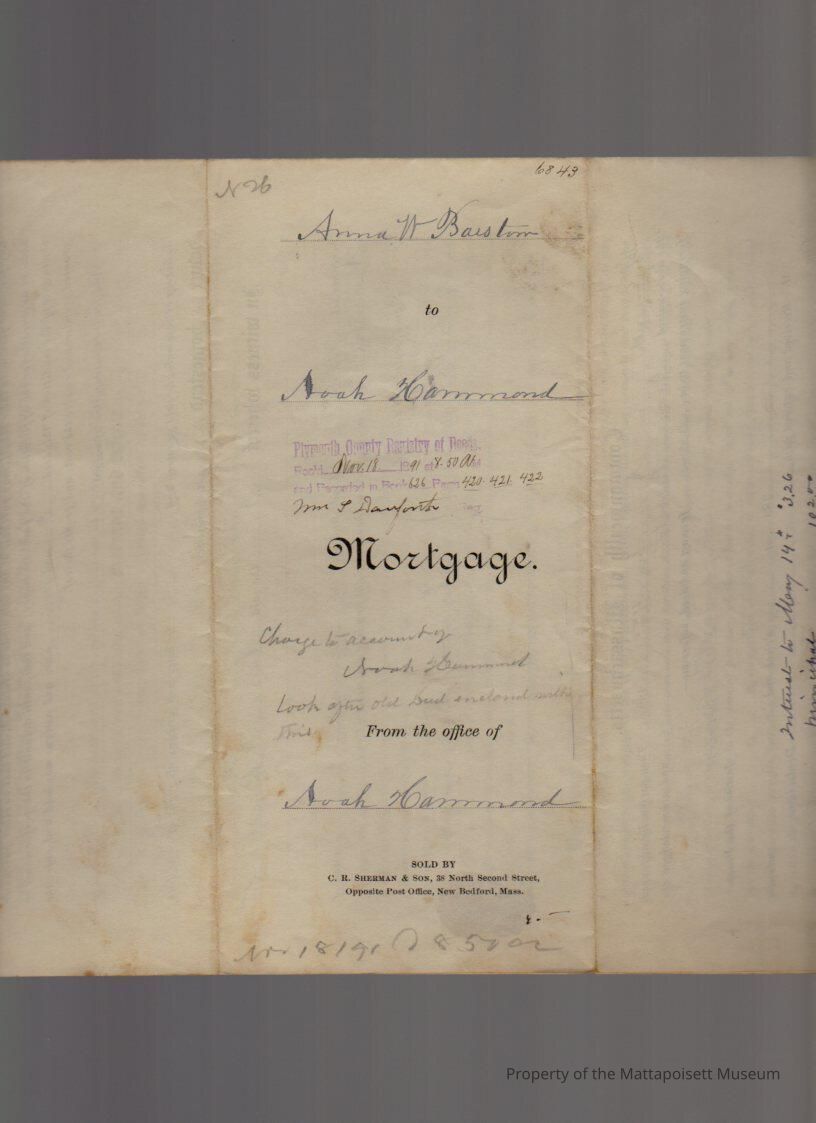 N 26
6843
Anna W Barstow
to
Noah Hammond
Plymouth County Registry of Deeds.
Rec'd Nov. 18 1891 at 8.50 A M
and Recorded in Book 626 Page 420-421-422
Wm S Danforth Reg.
Mortgage.
Charge to account of
Noah Hammond
Look after old Deed enclosed with
this
From the office of
Noah Hammond
SOLD BY
C. R. SHERMAN & SON, 38 North Second Street,
Opposite Post Office, New Bedford, Mass.
Nov 18 1891 8 50 a
Interest to May 14th $3.26
Principal
Property of the Mattapoisett Museum